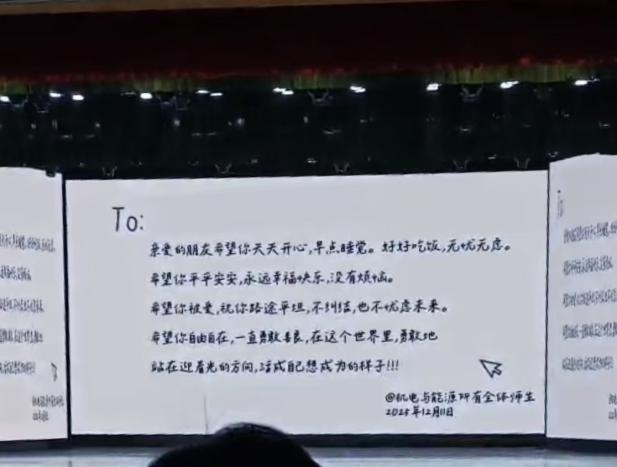 To:
亲爱的朋友希望你天天开心,早点睡觉。好好吃饭,无忧无虑。
希望你平平安安,永远幸福快乐,没有烦恼。
希望你被爱,祝你路途平坦,不纠结,也不忧虑未来。
希望你自由自在,一直勇敢善良,在这个世界里,勇敢地
站在迎着光的方向,活成自己想成为的样子!!!
@机电与能源所有全体师生
2025年12月11日